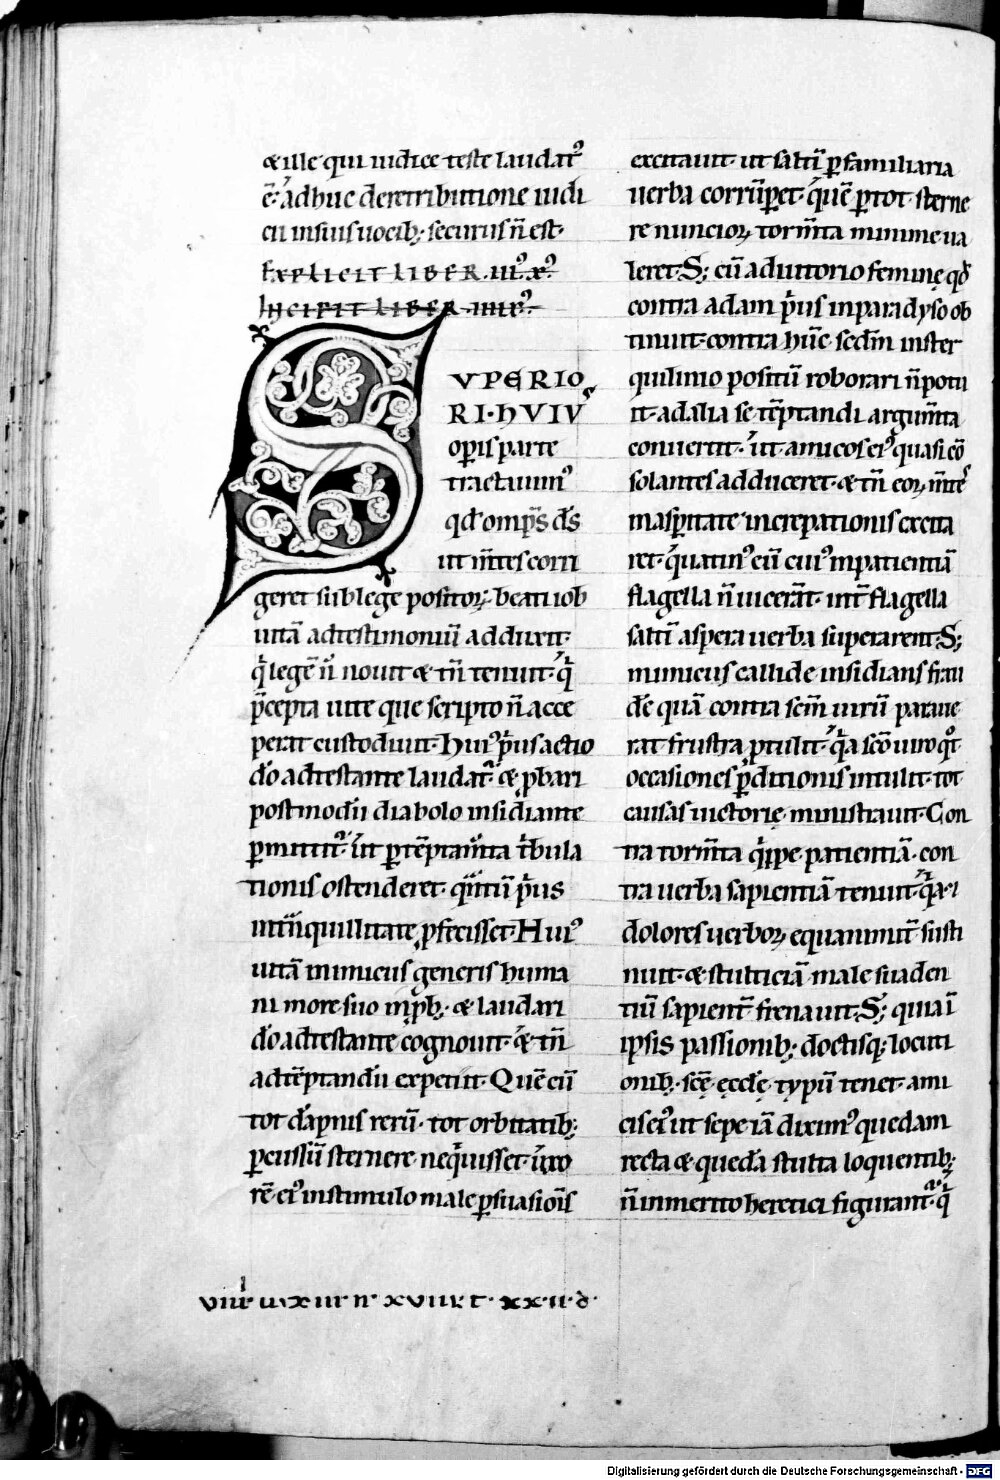 & ille qui iudice teste laudat᷒
ē. adhuc deretributione iudi
cii insius uocib; securus n̄ est.
EXPLICIT LIBER .III.X.
INCIPIT LIBER .IIII.
SVPERIO
RI·HVIVˢ
op̄is parte
tractauim᷒
qd̓ omp̄s d̄s
ut m̄tes corri
geret sub lege positoꝝ. beati iob
uitā ad testimoniū adduxit.
q̍ legē n̄ nouit & tn̄ tenuit. q̍
p̄cepta uite que scripto n̄ acce
perat custodiuit. Hui᷒ p̍us actio
dō adtestante laudat᷒. & ꝓbari
postmodū diabolo insidiante
ꝑmittit᷒. ut ꝑ tēptam̄ta tͥbula
tionis ostenderet. qͣntū p̍us
int̄nquillitate ꝓfecisset. Hui᷒
uitā inimicus generis huma
ni more suo inꝓb;. & laudari
dō adtestante cognouit. & tn̄
ad tēptandū expetiit. Quē cū
tot dāpnis rerū. tot orbitatib;
ꝑcussū sternere neq̍uisset. uxo
rē ei᷒ in stimulo male ꝑsuasiōis
excitauit. ut saltī ꝑ familiaria
uerba corrūꝑet. quē ꝑ tot sterne
re nuncioꝝ torm̄ta minime ua
leret. S; cū adiutorio feminę qd̓
contra adam p̍us in paradyso ob
tinuit. contra hūc sedm̄ in ster
quilinio positū roborari n̄ potu
it. ad alia se tēptandi argum̄ta
conuertit. ut amicos ei᷒ quasi cō
solantes adduceret. & tn̄ eoꝝ m̄tes
in asꝑitate increpationis excita
ret. quatin᷒ cū cui᷒ inpatientiā
flagella n̄ uicerāt. int̄ flagella
saltī aspera uerba superarent. S;
inimicus callide insidians frau
dē quā contra scm̄ uirū paraue
rat frustra ꝓtulit. q̍a scō uiro q̊t
occasiones ꝑditionis intulit. tot
causas uictorię ministrauit. Con
tra torm̄ta q̍ppe patientiā. con
tra uerba sapientiā tenuit. q̍a. &
dolores uerboꝝ equanimit̄ susti
nuit. & stulticiā male suaden
tiū sapient̄ frenauit. S; quia ī
ipsis passionib; doctisq; locuti
onib; scē ęcclę typū tenet. ami
ci sei᷒ ut sepe iā dixim᷒ quedam
recta & quedā stulta loquentib;
n̄ inmerito heretici figurant᷒. q̍
Digitalisierung gefördert durch die Deutsche Forschungsgemeinschaft - DFG